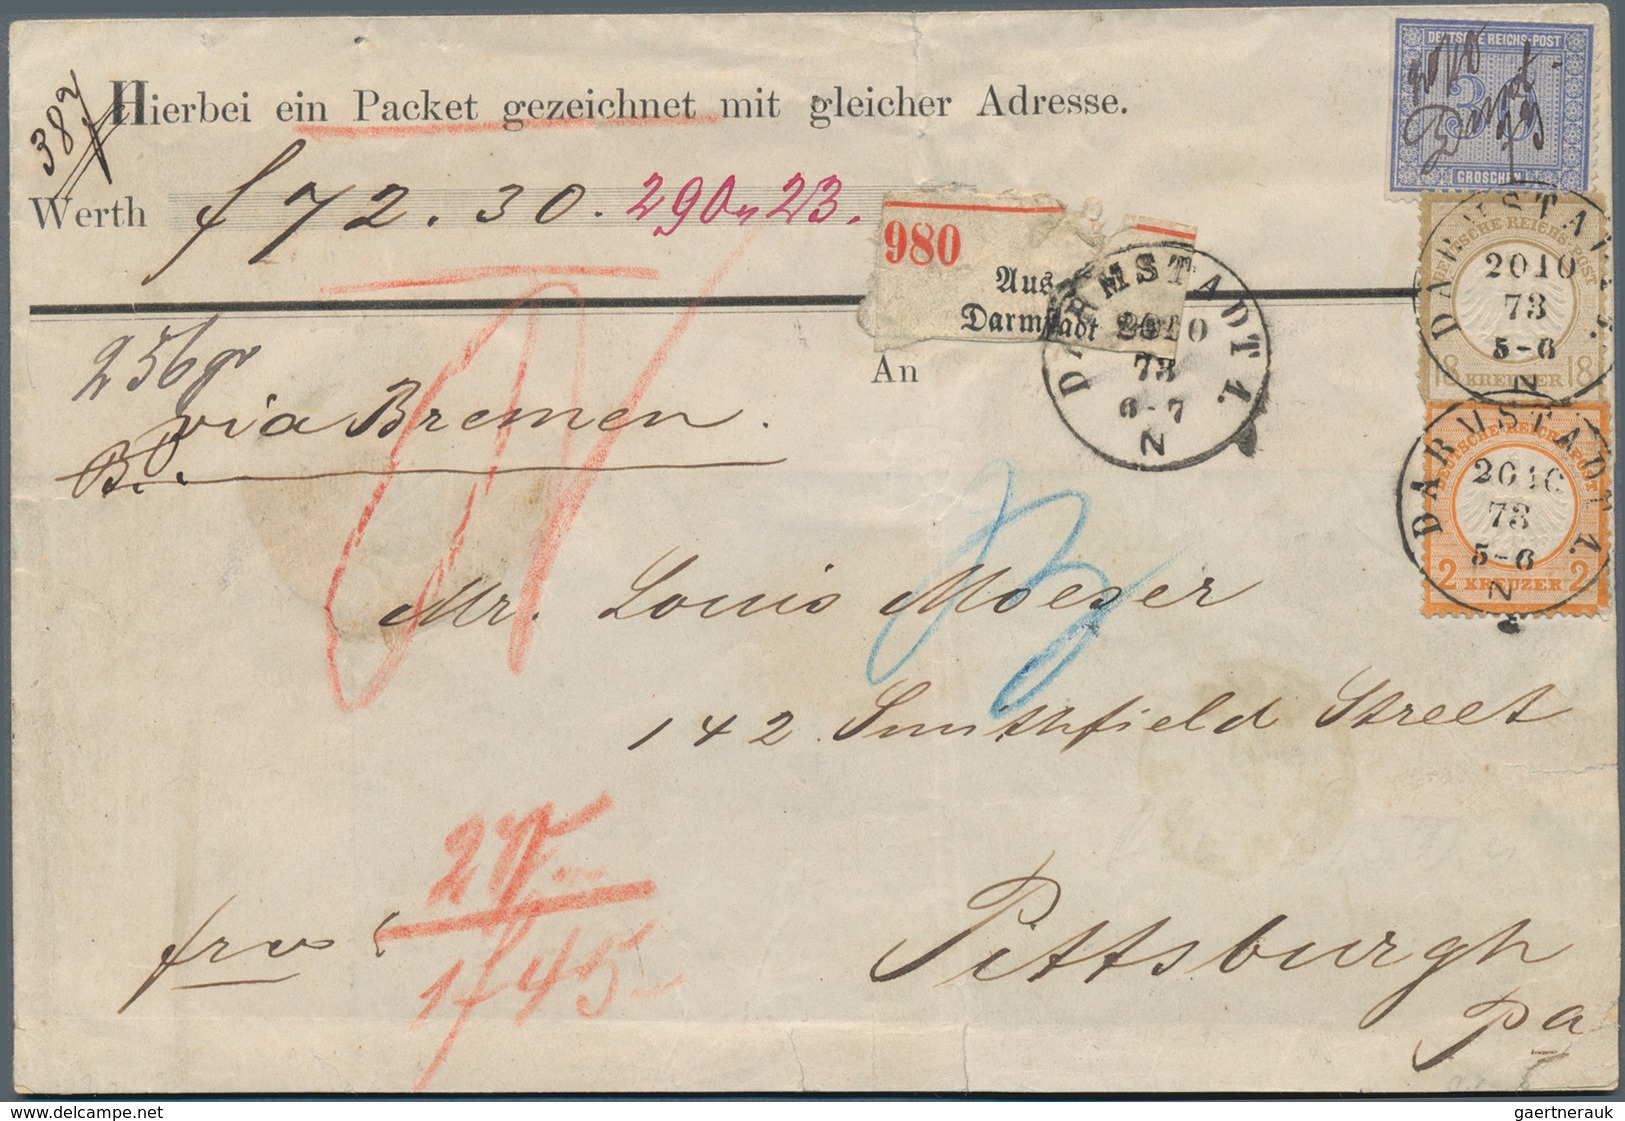 Hierbei ein Packet gezeichnet mit gleicher Adresse.
382
Werth f 72. 30. 290 23.
980
Aus
Darmstadt
DARMSTADT 1.
2010
73
6-7
N
An
DEUTSCHE REICHS-POST
3
GROSCHEN
DARMSTADT 1.
DEUTSCHE REICHS-POST
2010
73
5-6
N
18 KREUZER 18
DARMSTADT 1.
DEUTSCHE REICHS-POST
2010
73
5-6
N
2 KREUZER 2
256 gr
via Bremen.
Mr. Louis Moeser
142 Smithfield Street
Pittsburgh
Pa
1f 45
gaertnerauk